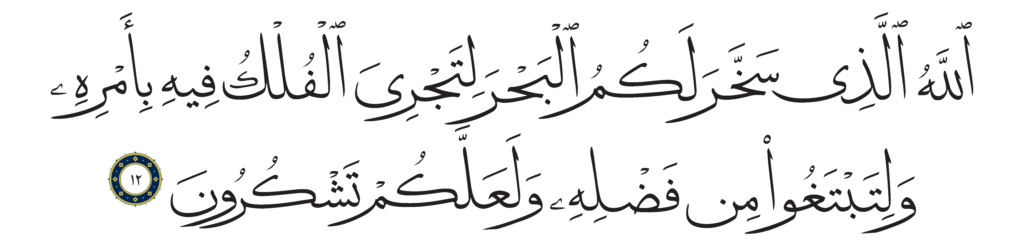 ٱللَّهُ ٱلَّذِى سَخَّرَ لَكُمُ ٱلْبَحْرَ لِتَجْرِىَ ٱلْفُلْكُ فِيهِ بِأَمْرِهِۦ
وَلِتَبْتَغُوا۟ مِن فَضْلِهِۦ وَلَعَلَّكُمْ تَشْكُرُونَ ١٢